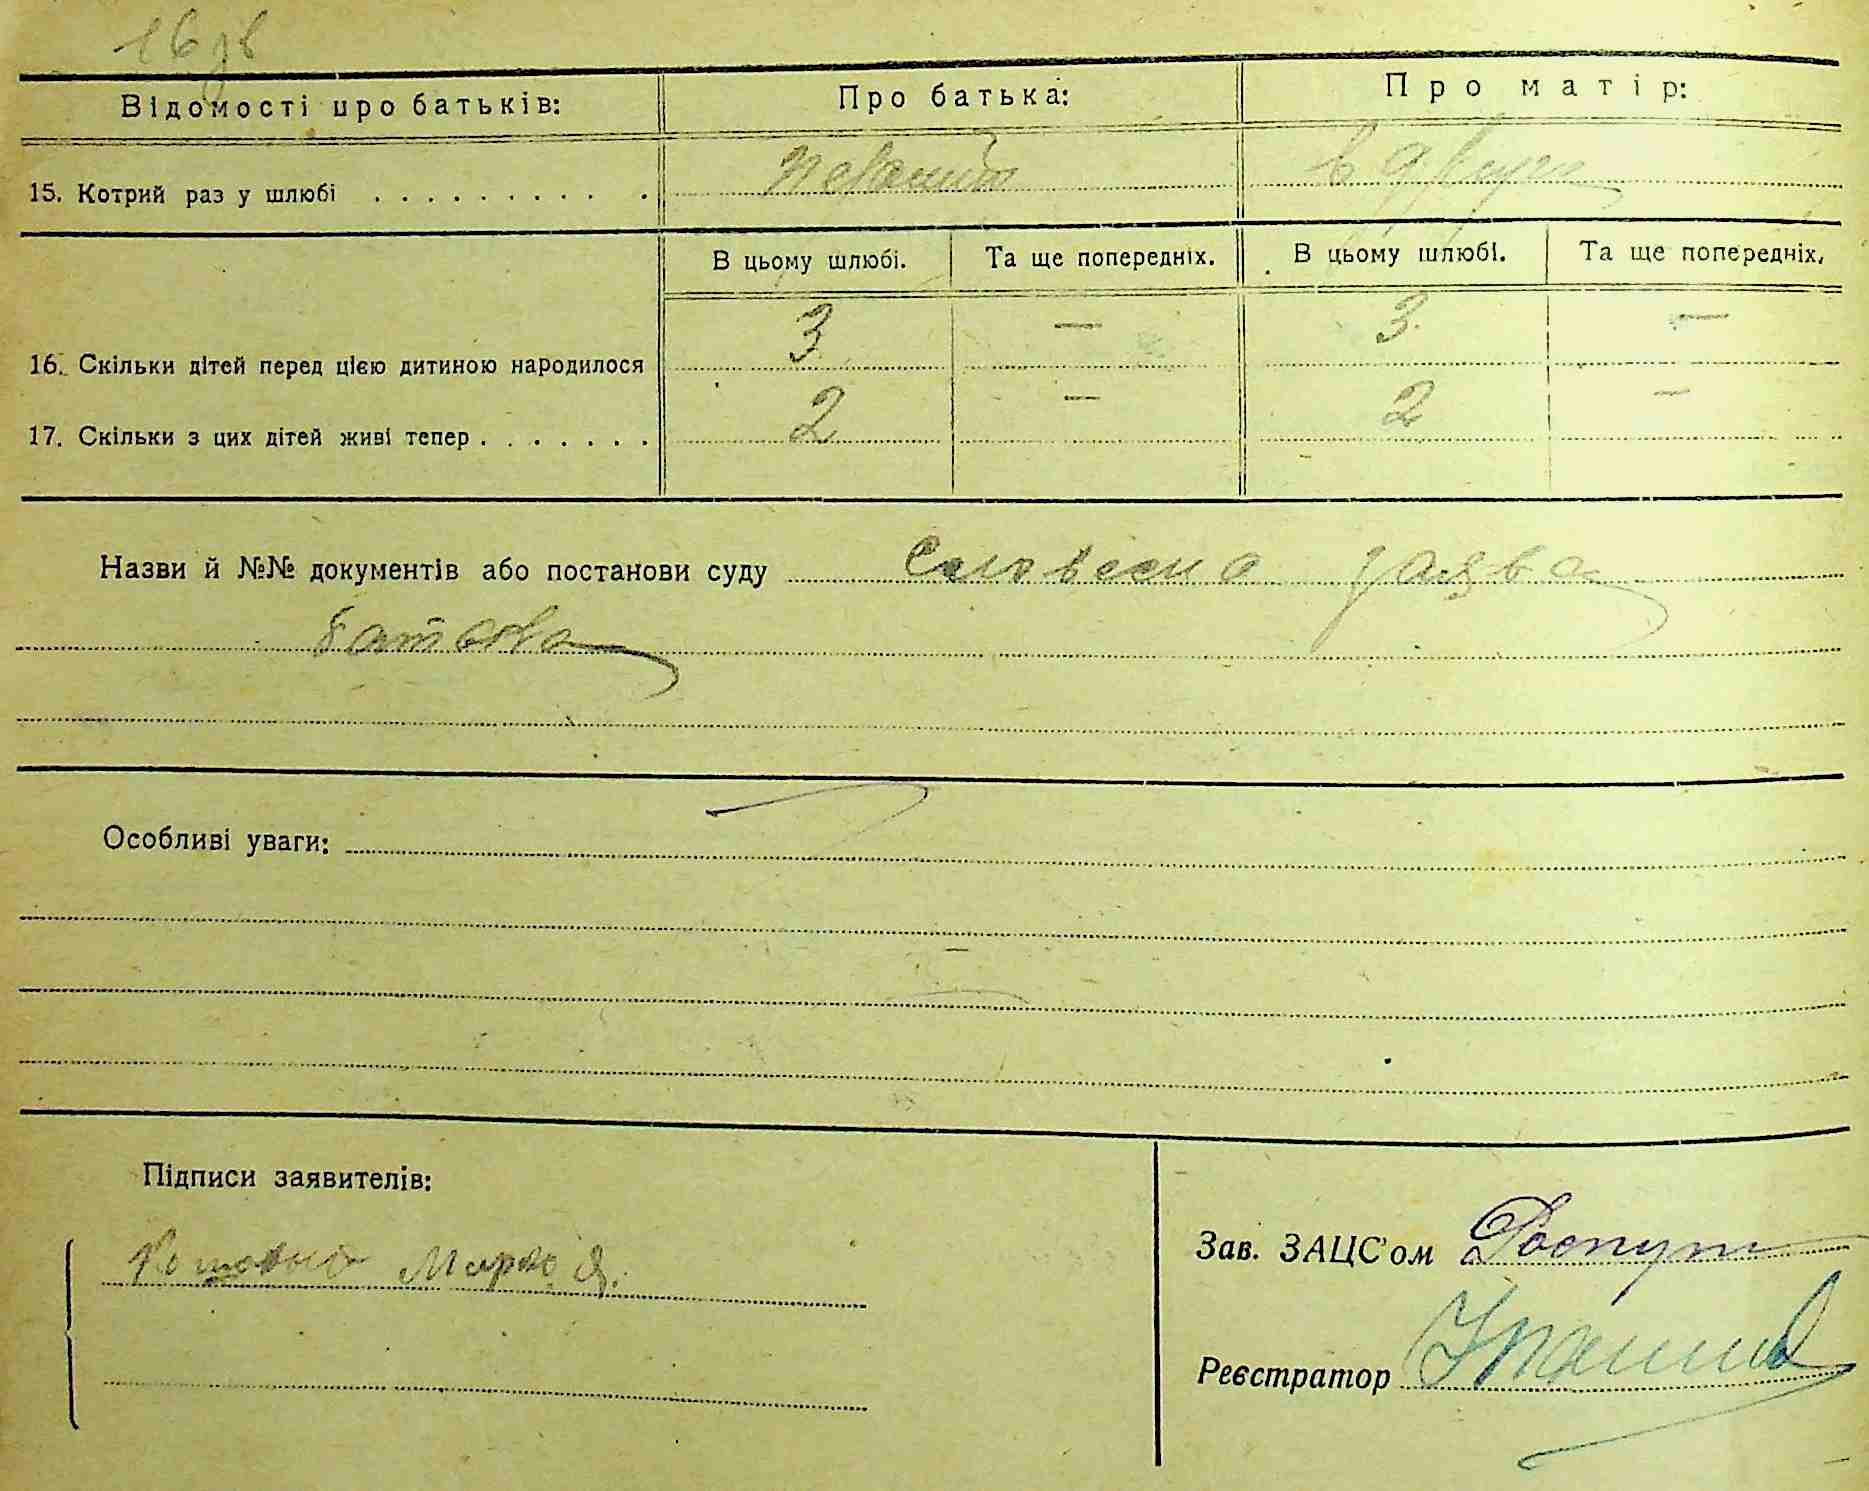 16 зв
Відомості про батьків:
Про батька:
Про матір:
15. Котрий раз у шлюбі . . . . . . . . . .
в други
В цьому шлюбі.
Та ще попередніх.
В цьому шлюбі.
Та ще попередніх.
16. Скільки дітей перед цією дитиною народилося
3 — 3 —
17. Скільки з цих дітей живі тепер . . . . . . .
2 — 2 —
Назви й №№ документів або постанови суду словесна заява
батька
Особливі уваги:
Підписи заявителів:
Зав. ЗАЦС'ом
Реєстратор